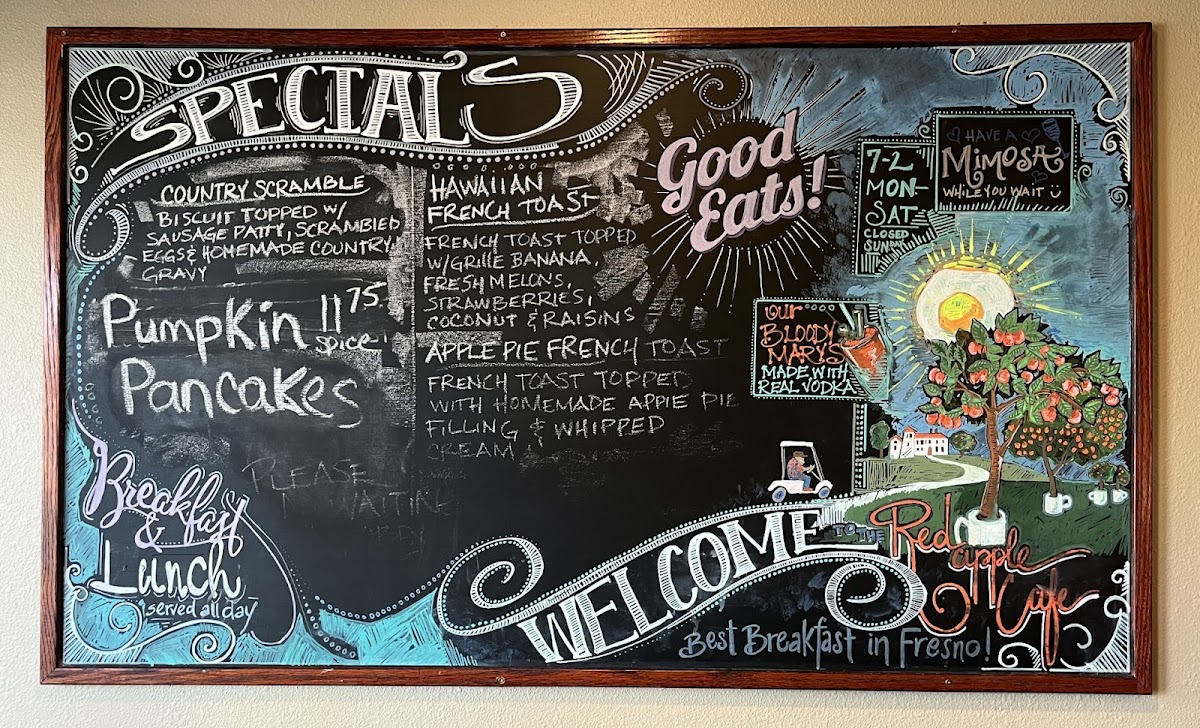 SPECIAL'S
COUNTRY SCRAMBLE
BISCUIT TOPPED W/
SAUSAGE PATTY, SCRAMBLED
EGGS & HOMEMADE COUNTRY
GRAVY
Pumpkin 11 75
spice
Pancakes
HAWAIIAN
FRENCH TOAST
FRENCH TOAST TOPPED
W/GRILLE BANANA,
FRESH MELONS,
STRAWBERRIES,
COCONUT & RAISINS
APPLE PIE FRENCH TOAST
FRENCH TOAST TOPPED
WITH HOMEMADE APPLE PIE
FILLING & WHIPPED
CREAM
PLEASE
Good
Eats!
7-2
MON-
SAT
CLOSED
SUNDAY
HAVE A
MIMOSA
WHILE YOU WAIT
our
BLOODY
MARY'S
MADE WITH
REAL VODKA
Breakfast
&
Lunch
served all day
WELCOME TO THE
Red
apple
Cafe
Best Breakfast in Fresno!